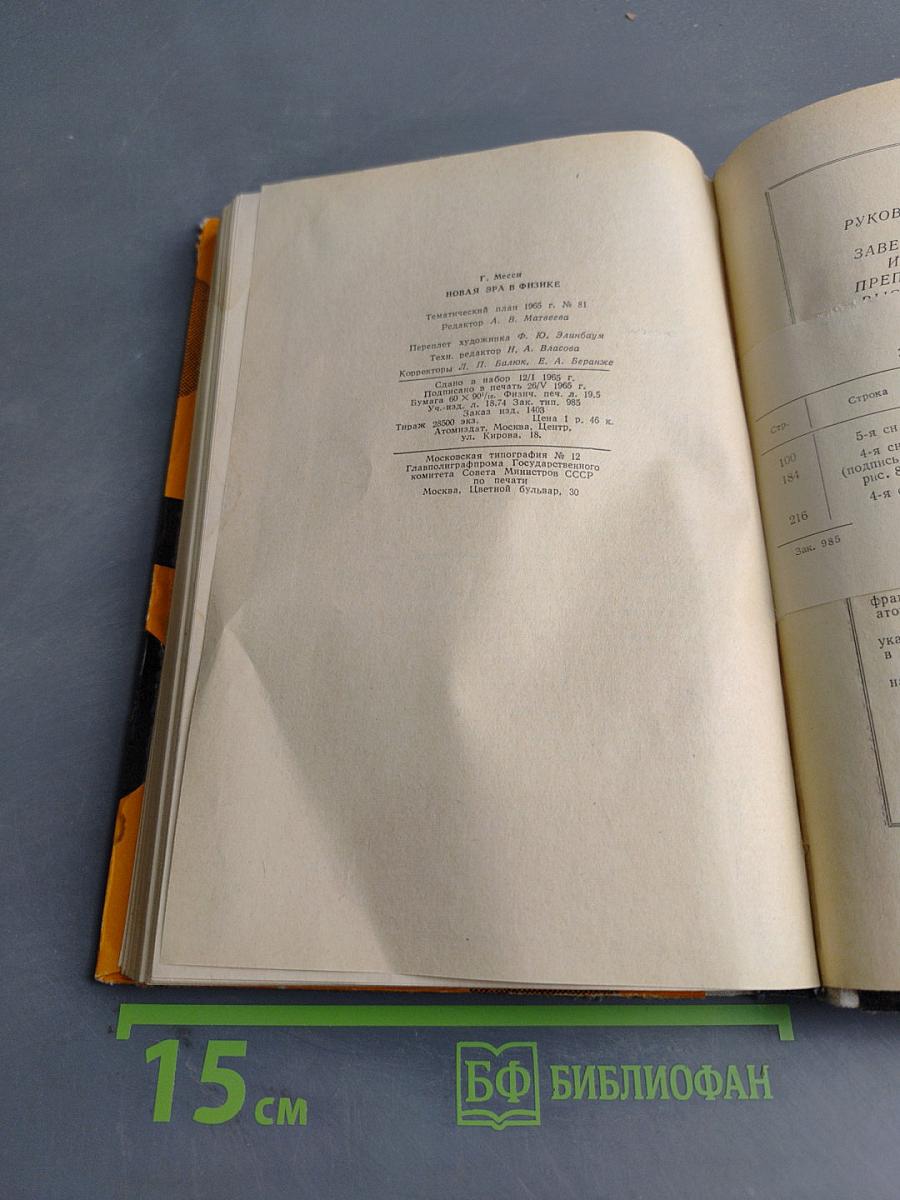 Г. Месси
НОВАЯ ЭРА В ФИЗИКЕ
Тематический план 1965 г. № 81
Редактор А. В. Матвеева
Переплет художника Ф. Ю. Элинбаум
Техн. редактор Н. А. Власова
Корректоры Л. П. Балюк, Е. А. Беранже
Сдано в набор 12/I 1965 г.
Подписано в печать 26/V 1965 г.
Бумага 60 × 90¹/₁₆. Физич. печ. л. 19,5
Уч.-изд. л. 18,74 Зак. тип. 985
Заказ изд. 1403
Тираж 28500 экз. Цена 1 р. 46 к.
Атомиздат, Москва, Центр,
ул. Кирова, 18.
Московская типография № 12
Главполиграфпрома Государственного
комитета Совета Министров СССР
по печати
Москва, Цветной бульвар, 30
РУКОВ
ЗАВЕ
И
ПРЕП
Стр. Строка
100 5-я сн
184 4-я сн
(подпись
рис. 8
216 4-я
Зак. 985
фран
ато
ука
в
на
15 см
БФ БИБЛИОФАН